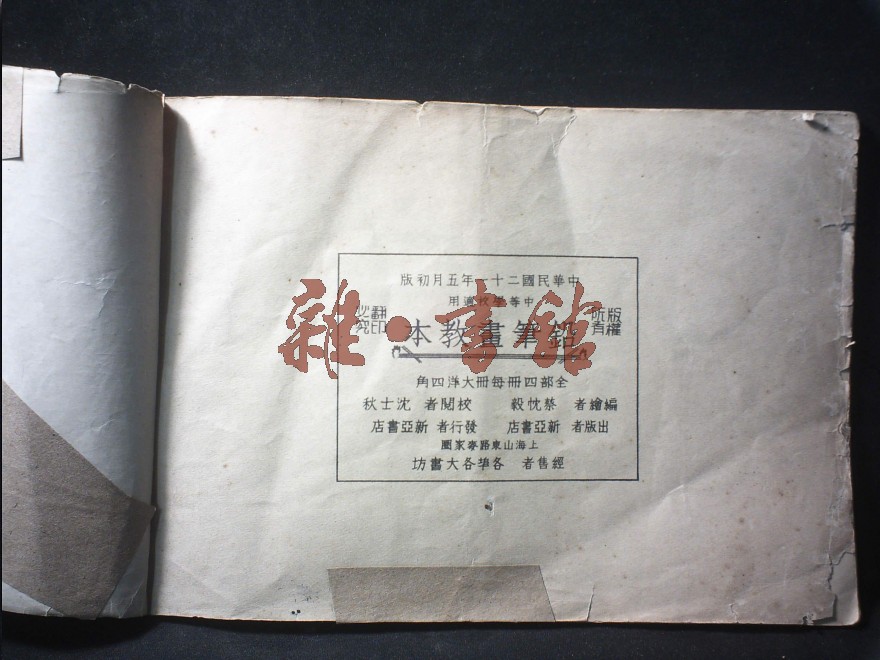 中華民國二十一年五月初版
中等學校適用
版權所有
鉛筆畫教本
翻印必究
全部四冊每冊大洋四角
編繪者 蔡忱毅 校閱者 沈士秋
出版者 新亞書店 發行者 新亞書店
上海山東路麥家圈
經售者 各埠各大書坊
雜·書館